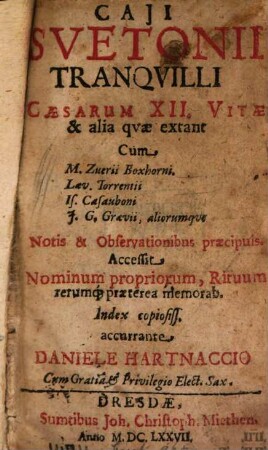 CAJI
SVETONII
TRANQVILLI
CÆSARUM XII. VITÆ
& alia qvæ extant
Cum
M. Zuerii Boxhorni.
Læv. Torrentii
Is. Casauboni
J. G. Grævii, aliorumqve
Notis & Observationibus præcipuis.
Accessit
Nominum propriorum, Rituum
rerumq; præterea memorab.
Index copiosiss.
accurrante
DANIELE HARTNACCIO
Cum Gratia & Privilegio Elect. Sax.
DRESDÆ,
Sumtibus Joh. Christoph. Miethen.
Anno M. DC. LXXVII.